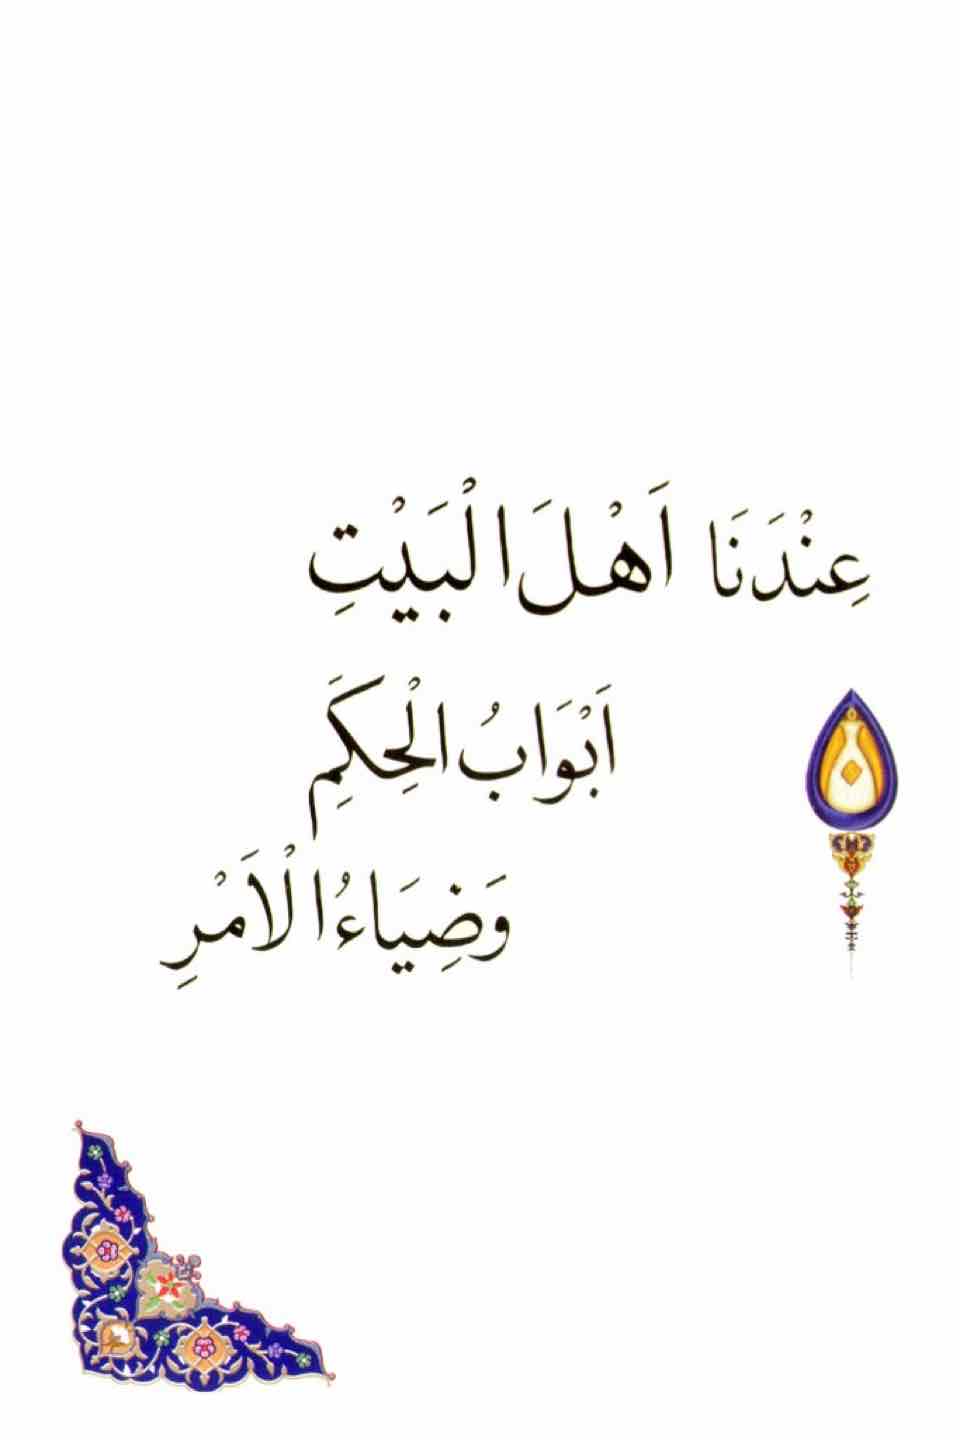 عِنْدَنَا اَهْلَ الْبَيْتِ
اَبْوَابُ الْحِكَمِ
وَضِيَاءُ الْاَمْرِ